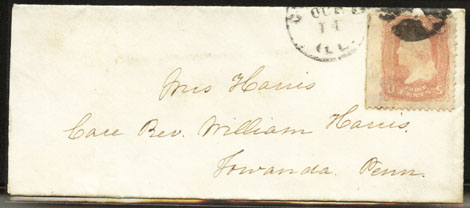 OCT
14
ILL.
Mrs Harris
Care Rev. William Harris.
Towanda. Penn.